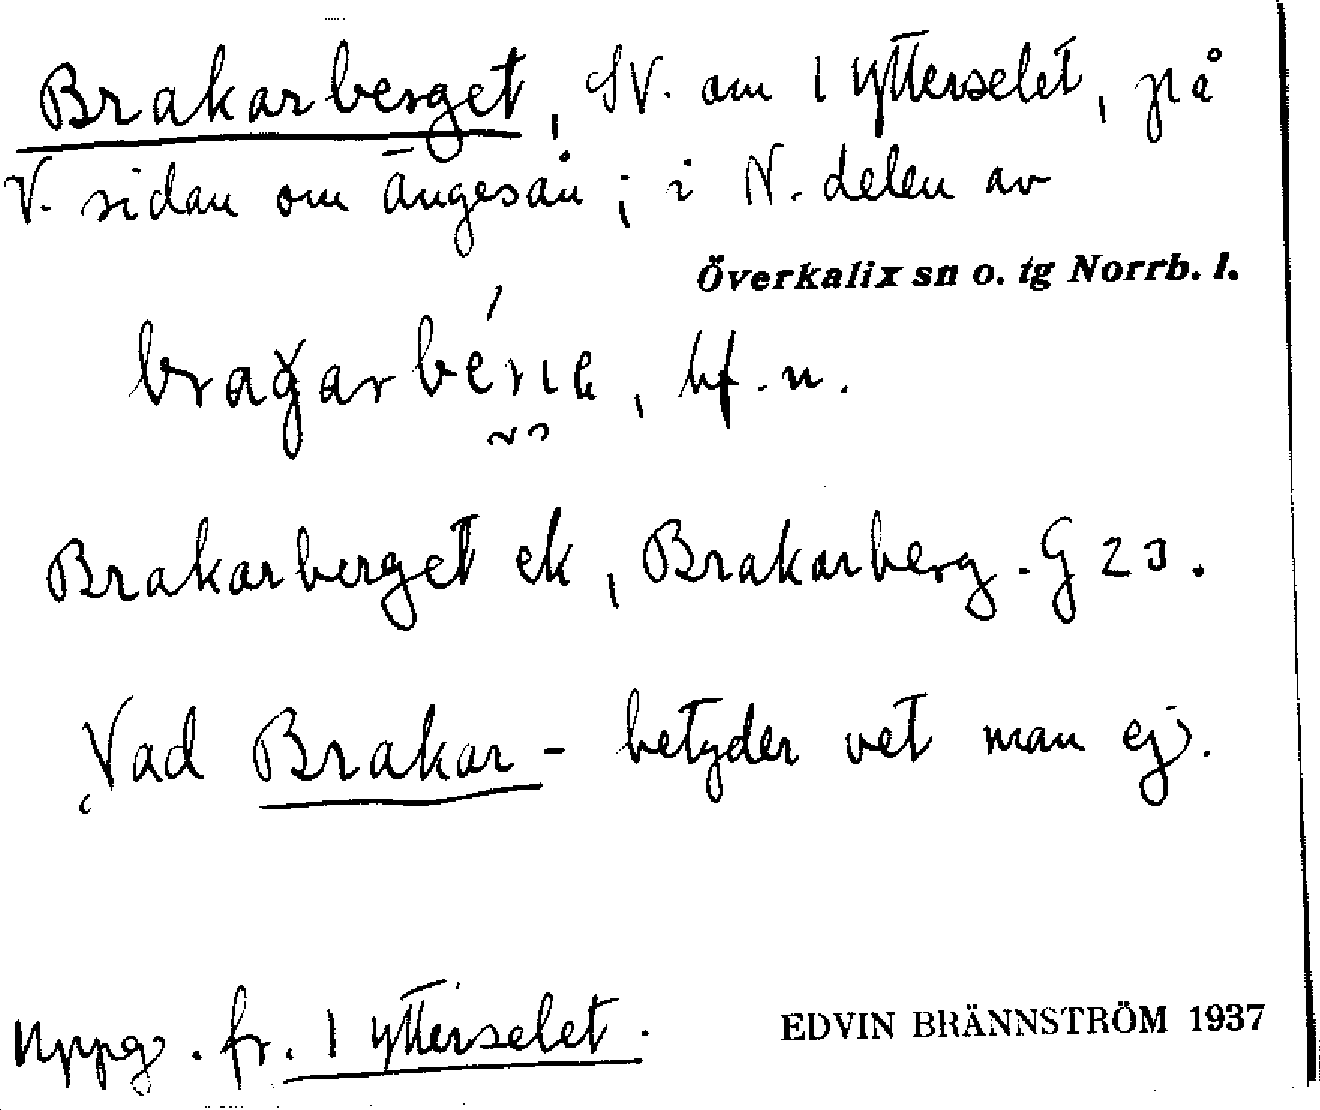 Brakarberget, SV. om 1 Ytterselet, på
V. sidan om Ängesån; i N. delen av
Överkalix sn o. tg Norrb. l.
bf. n.
Brakarberget ek, Brakarberg. G 23.
Vad Brakar- betyder vet man ej.
Uppg. fr. 1 Ytterselet.
EDVIN BRÄNNSTRÖM 1937